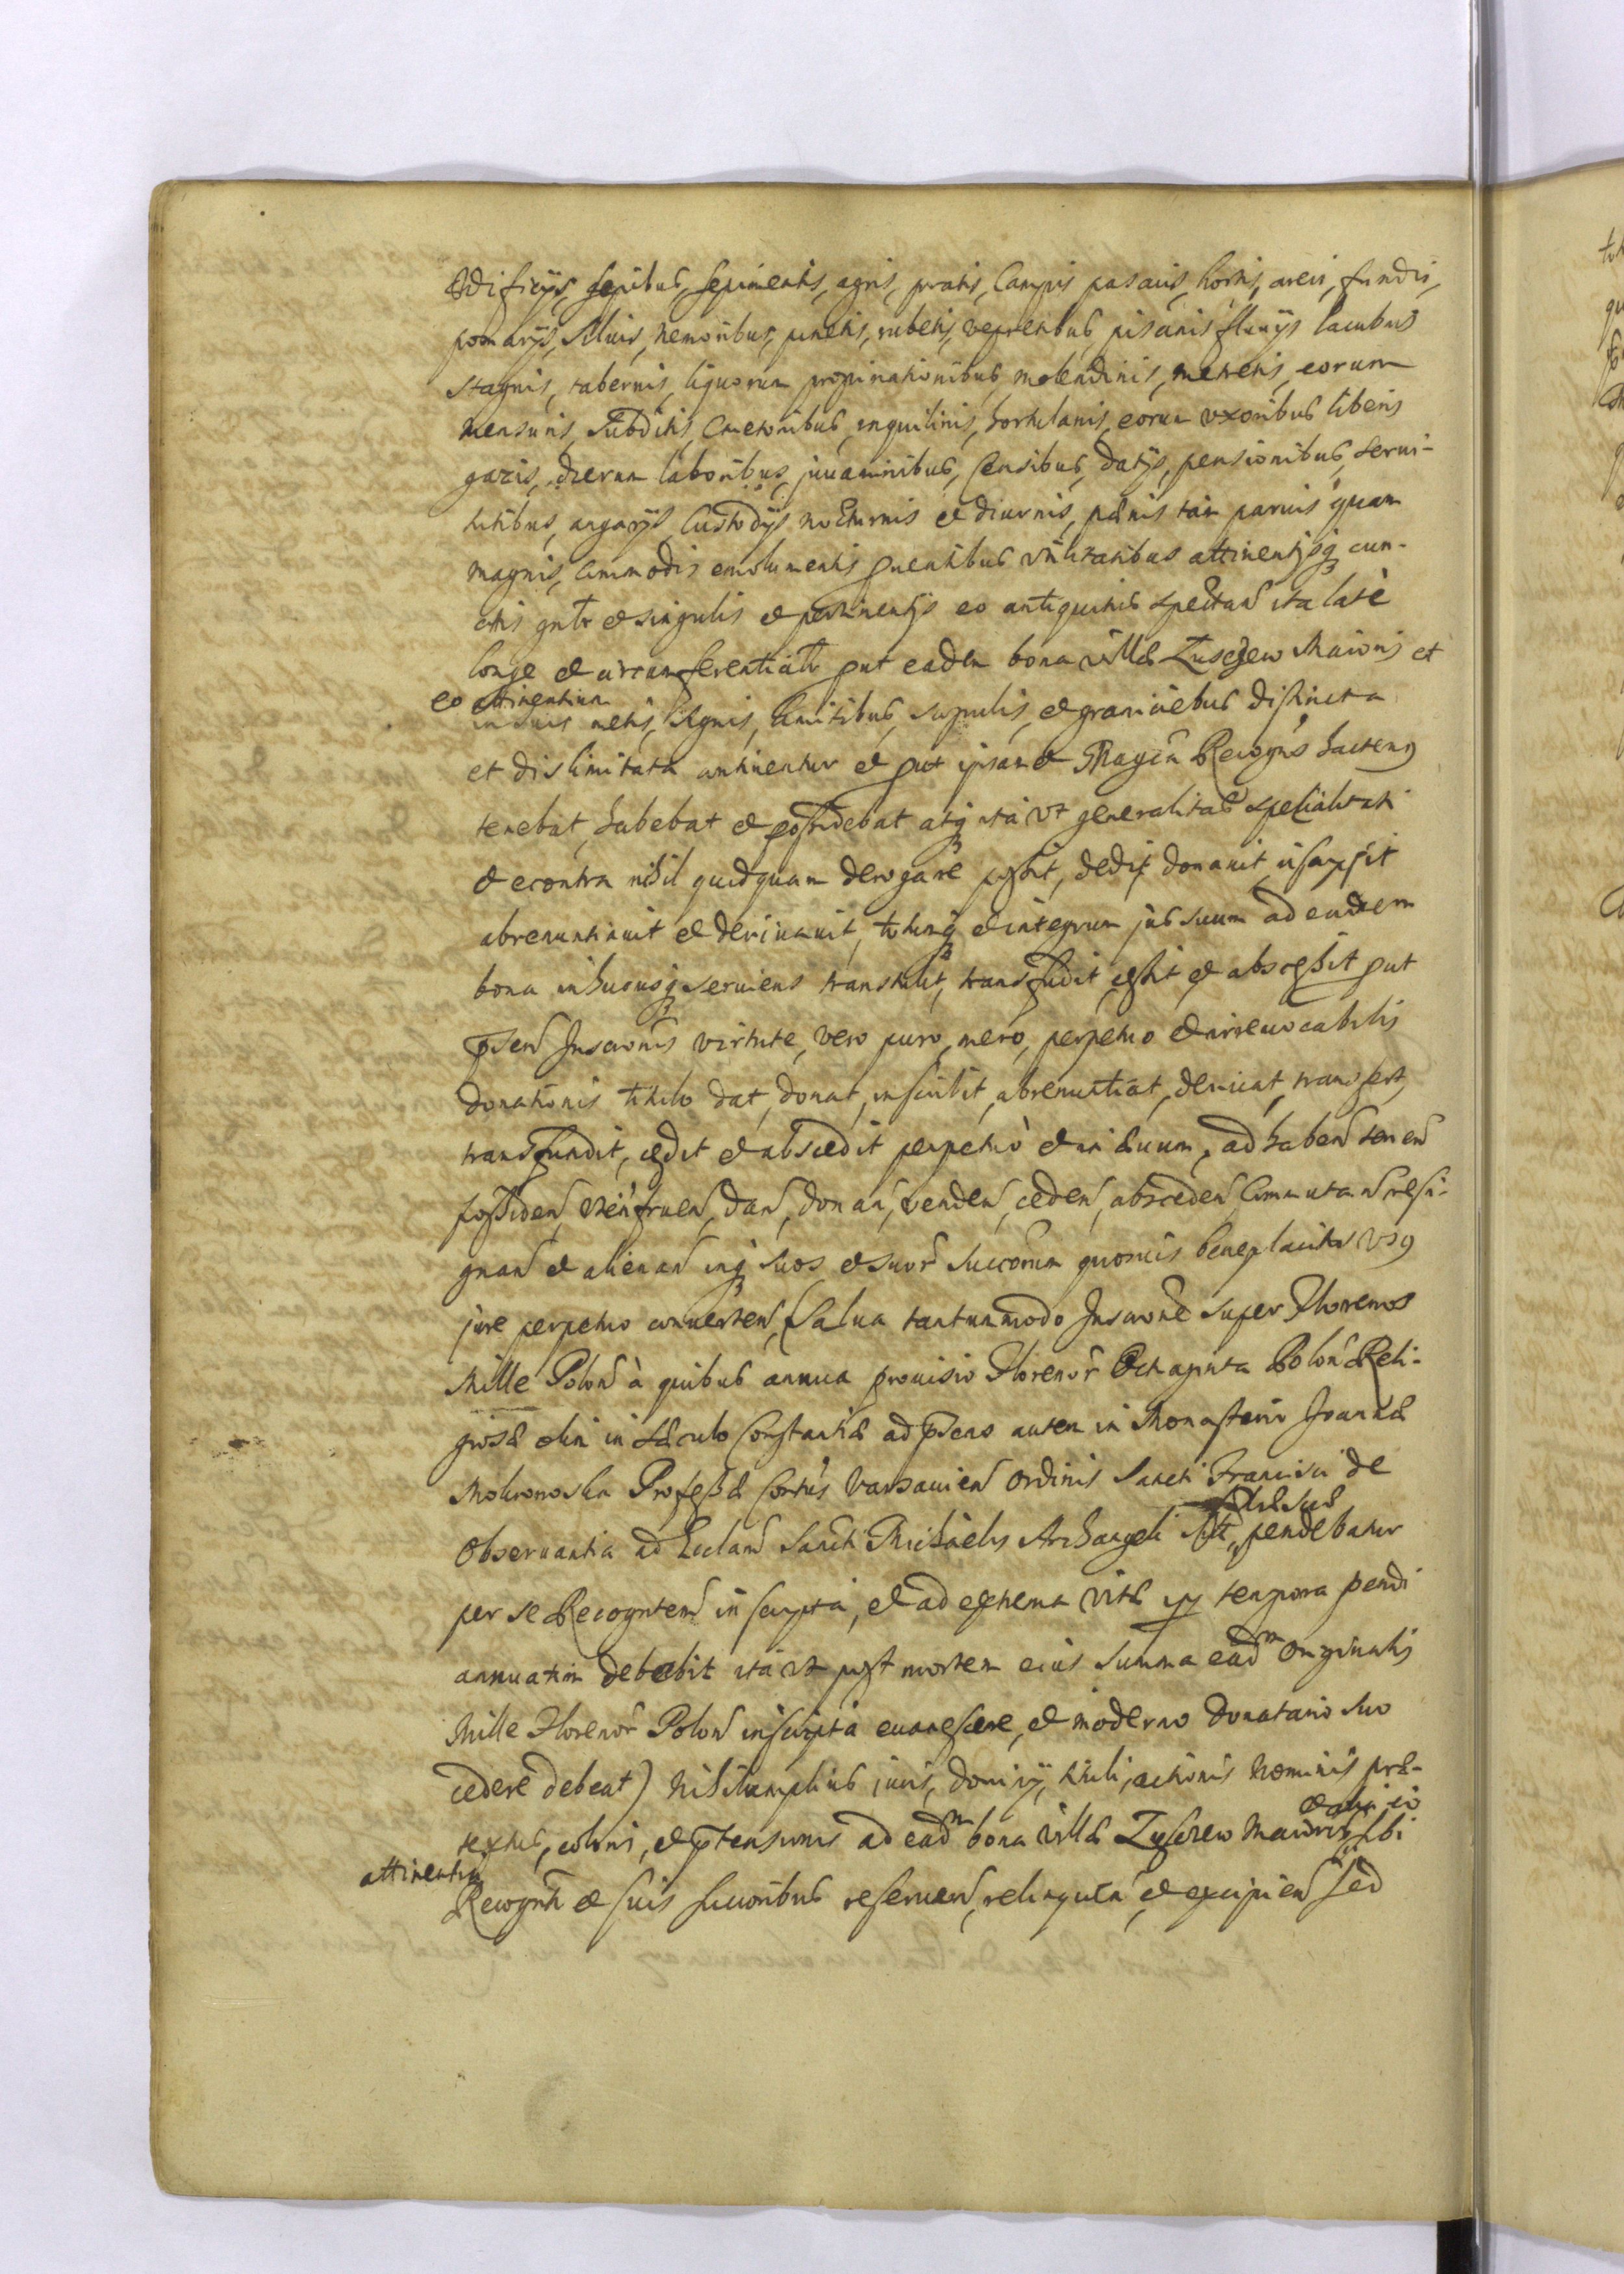 Ædificijs, sepibus, sepimentis, agris, pratis, Campis pascuis, hortis, areis, fundis,
pomarijs, siluis, nemoribus, pinetis, rubetis, vepretibus, piscinis fluuijs lacubus
stagnis, tabernis, liquorum propinationibus, molendinis, metretis, eorum
mensuris, subditis, Cmetonibus, inquilinis, hortulanis, eorum vxoribus liberis
gazis, dierum laboribus, juuaminibus, Censibus, datijs, pensionibus, serui-
tutibus, angarijs, Custodijs nocturnis et diurnis, pænis tam paruis quam
magnis, Commodis emolumentis prouentibus vtilitatibus attinentijsq cun-
ctis gnlr et singulis et pertinentijs eo antiquitus spectan ita latè
longe et circumferentialr put eadem bona villæ Zuschew Maioris et
eo attinentium
in suis metis, signis, limitibus, scopulis, et graniciebus distincta
et dislimitata continentur et put ipsamet Magca Recogns hacteng
tenebat, habebat et possidebat atq ita vt generalitas specialitati
et econtra nihil quidquam derogare possit, dedit donauit inscripsit
abrenuntiauit et deriuauit, totumq et integrum jus suum ad eadem
bona in hucusq seruiens transtulit, transfudit cessit et abscessit put
psen Inscronis virtute, vero puro, mero, perpetuo et irreuocabilis
donationis titulo dat, donat, inscribit, abrenuntiat, deriuat, transfert,
transfundit, cedit et abscedit perpetuò et in æuum, ad haben tenen
possiden, vten fruen, dan, donan, venden, ceden, absceden Commutan resi-
gnan et alienan inq suos et suor succorum quosuis beneplacitos vsq
jure perpetuo conuerten, (Salua tantummodo Inscrone super Florenos
Mille Polon à quibus annua prouisio Florenor Octuaginta Polon Reli-
giosæ olim in sæculo Constantiæ ad psens autem in Monasterio Joannæ
Mokronoska Professæ Contus Varsauien Ordinis Sancti Francisci de
Obseruantia ad Ecclam Sancti Michaelis Archangeli pendebatur
per se Recognten inscripta, et ad extrema vitæ tempora pendi
annuatim debebit ita vt post mortem eius summa eadm Originalis
Mille Florenor Polon inscripta euanescere, et moderno Donatario suo
cedere debeat) Nihil amplius juris, dominij, tituli, actionis Nominis præ-
textus, coloris, et ptensionis ad eadm bona villæ Zuschew Maioris sibi
attinentia
Recognti et suis succoribus reseruan, relinquen et excipien sed